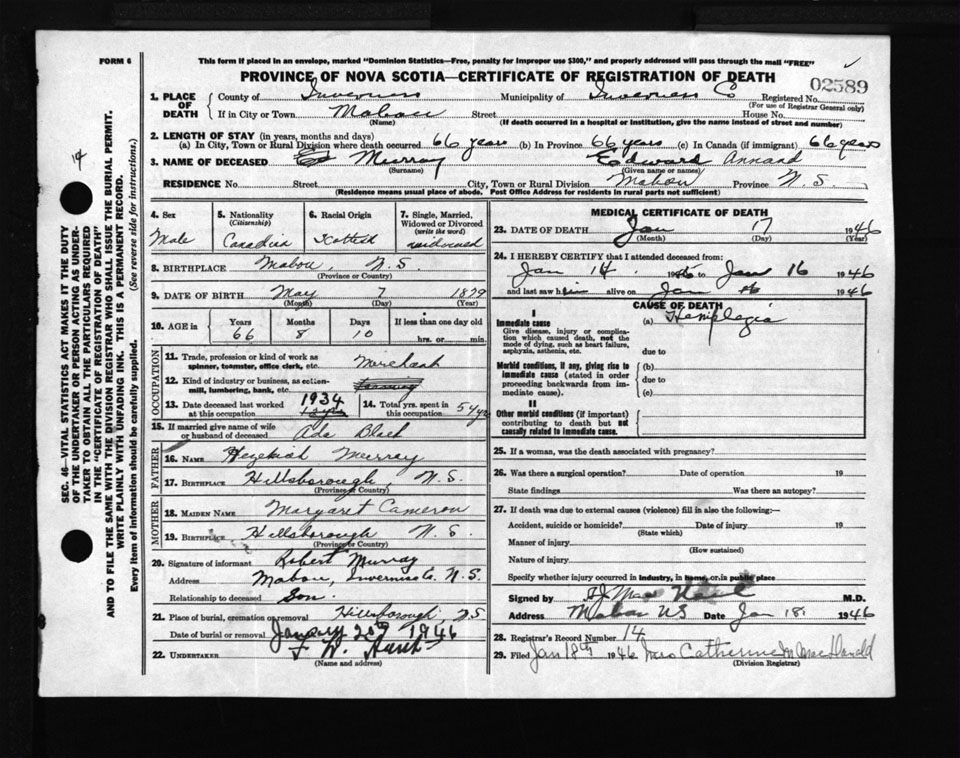 FORM 6
This form if placed in an envelope, marked "Dominion Statistics—Free, penalty for improper use $300," and properly addressed will pass through the mail "FREE"
PROVINCE OF NOVA SCOTIA—CERTIFICATE OF REGISTRATION OF DEATH
02589
1. PLACE OF DEATH
County of Inverness Municipality of Inverness Co Registered No.
(For use of Registrar General only)
If in City or Town Mabou Street House No.
(Name) (If death occurred in a hospital or institution, give the name instead of street and number)
2. LENGTH OF STAY (in years, months and days)
(a) In City, Town or Rural Division where death occurred 66 years (b) In Province 66 years (c) In Canada (if immigrant) 66 years
3. NAME OF DECEASED Murray Edward Annand
(Surname) (Given name or names)
RESIDENCE No. Street City, Town or Rural Division Mabou Province N. S.
(Residence means usual place of abode. Post Office Address for residents in rural parts not sufficient)
4. Sex
Male
5. Nationality
(Citizenship)
Canadian
6. Racial Origin
Scottish
7. Single, Married, Widowed or Divorced
(write the word)
widowed
8. BIRTHPLACE Mabou, N. S.
(Province or Country)
9. DATE OF BIRTH May 7 1879
(Month) (Day) (Year)
10. AGE in
Years Months Days If less than one day old
66 8 10 hrs. or min.
OCCUPATION
11. Trade, profession or kind of work as spinner, teamster, office clerk, etc. Merchant
12. Kind of industry or business, as cotton-mill, lumbering, bank, etc.
13. Date deceased last worked at this occupation 1934
14. Total yrs. spent in this occupation 5 yrs
15. If married give name of wife or husband of deceased Ada Black
FATHER
16. Name Hezekiah Murray
17. Birthplace Hillsborough, N. S.
(Province or Country)
MOTHER
18. Maiden Name Margaret Cameron
19. Birthplace Hillsborough N. S.
(Province or Country)
20. Signature of informant Robert Murray
Address Mabou, Inverness Co. N. S.
Relationship to deceased Son.
21. Place of burial, cremation or removal Hillsborough, NS
Date of burial or removal January 20th 1946
22. UNDERTAKER
(Name and address)
MEDICAL CERTIFICATE OF DEATH
23. DATE OF DEATH Jan 17 1946
(Month) (Day) (Year)
24. I HEREBY CERTIFY that I attended deceased from:
Jan 14 to Jan 16 1946
and last saw him alive on Jan 16 1946
CAUSE OF DEATH
I
Immediate cause (a) Hemiplegia
Give disease, injury or complication which caused death, not the mode of dying, such as heart failure, asphyxia, asthenia, etc.
due to
Morbid conditions, if any, giving rise to immediate cause (stated in order proceeding backwards from immediate cause).
(b)
due to
(c)
II
Other morbid conditions (if important) contributing to death but not causally related to immediate cause.
25. If a woman, was the death associated with pregnancy?
26. Was there a surgical operation? Date of operation 19
State findings Was there an autopsy?
27. If death was due to external causes (violence) fill in also the following:—
Accident, suicide or homicide? Date of injury 19
(State which)
Manner of injury
(How sustained)
Nature of injury
Specify whether injury occurred in industry, in home, or in public place
Signed by M.D.
Address Mabou NS Date Jan 18 1946
28. Registrar's Record Number 14
29. Filed Jan 18th 1946 Mrs Catherine M MacDonald
(Division Registrar)
14
SEC. 46—VITAL STATISTICS ACT MAKES IT THE DUTY
OF THE UNDERTAKER OR PERSON ACTING AS UNDER-
TAKER TO OBTAIN ALL THE PARTICULARS REQUIRED
IN THE "CERTIFICATE OF REGISTRATION OF DEATH"
AND TO FILE THE SAME WITH THE DIVISION REGISTRAR WHO SHALL ISSUE THE BURIAL PERMIT.
WRITE PLAINLY WITH UNFADING INK. THIS IS A PERMANENT RECORD.
Every item of information should be carefully supplied. (See reverse side for instructions.)